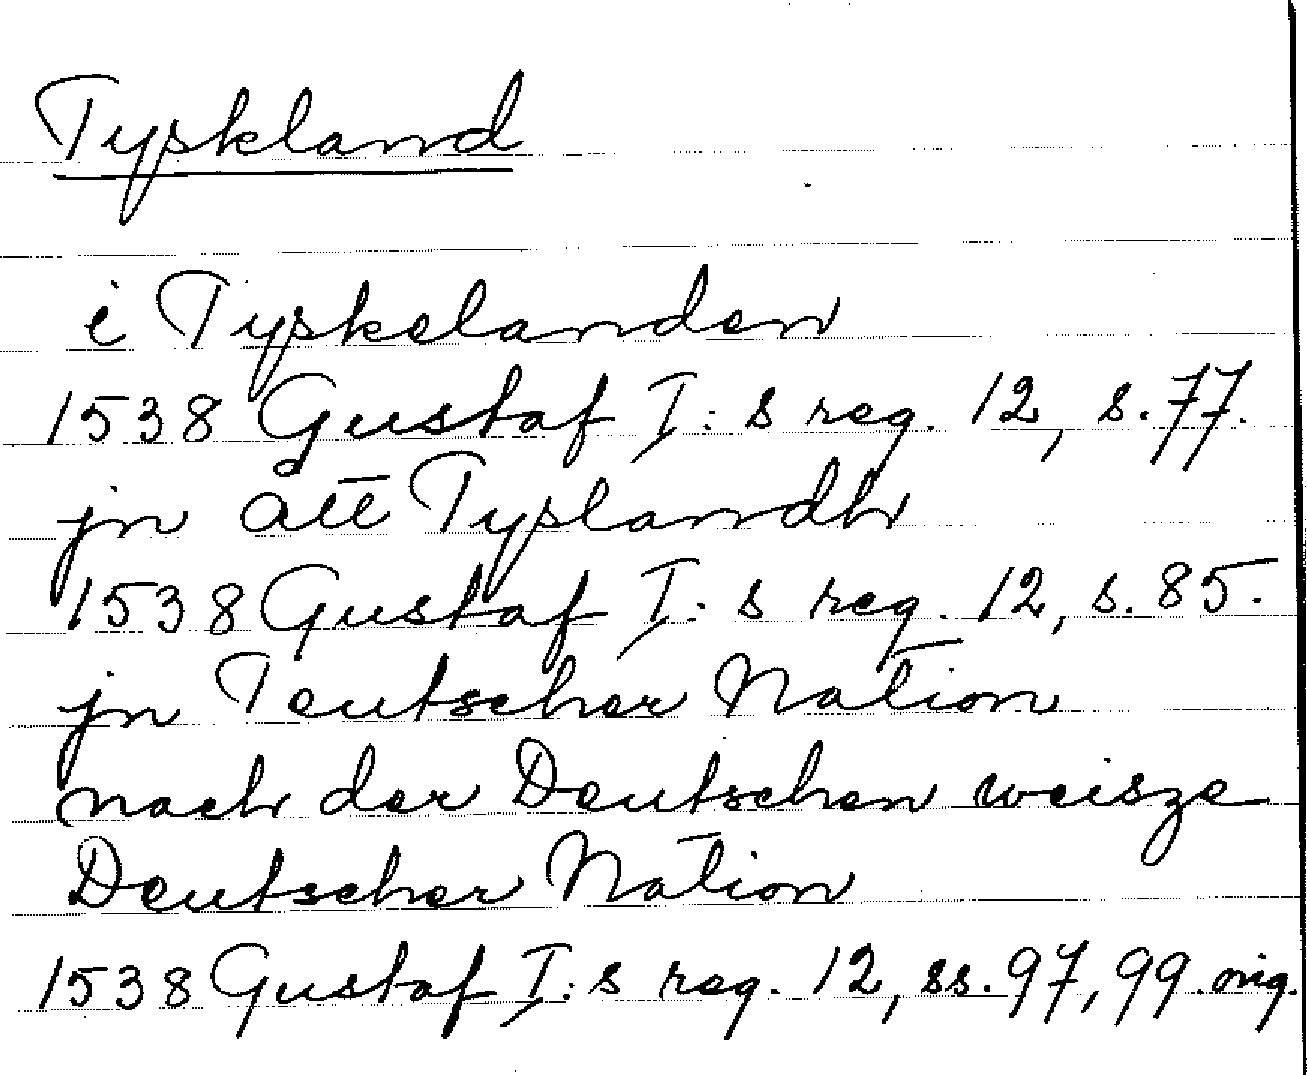 Tyskland
i Tyskelanden
1538 Gustaf I:s reg. 12, s. 77.
jn att Tyslandh
1538 Gustaf I:s reg. 12, s. 85.
jn Teutscher Nation
nach der Deutschen weisze
Deutscher Nation
1538 Gustaf I:s reg. 12, ss. 97, 99 orig.